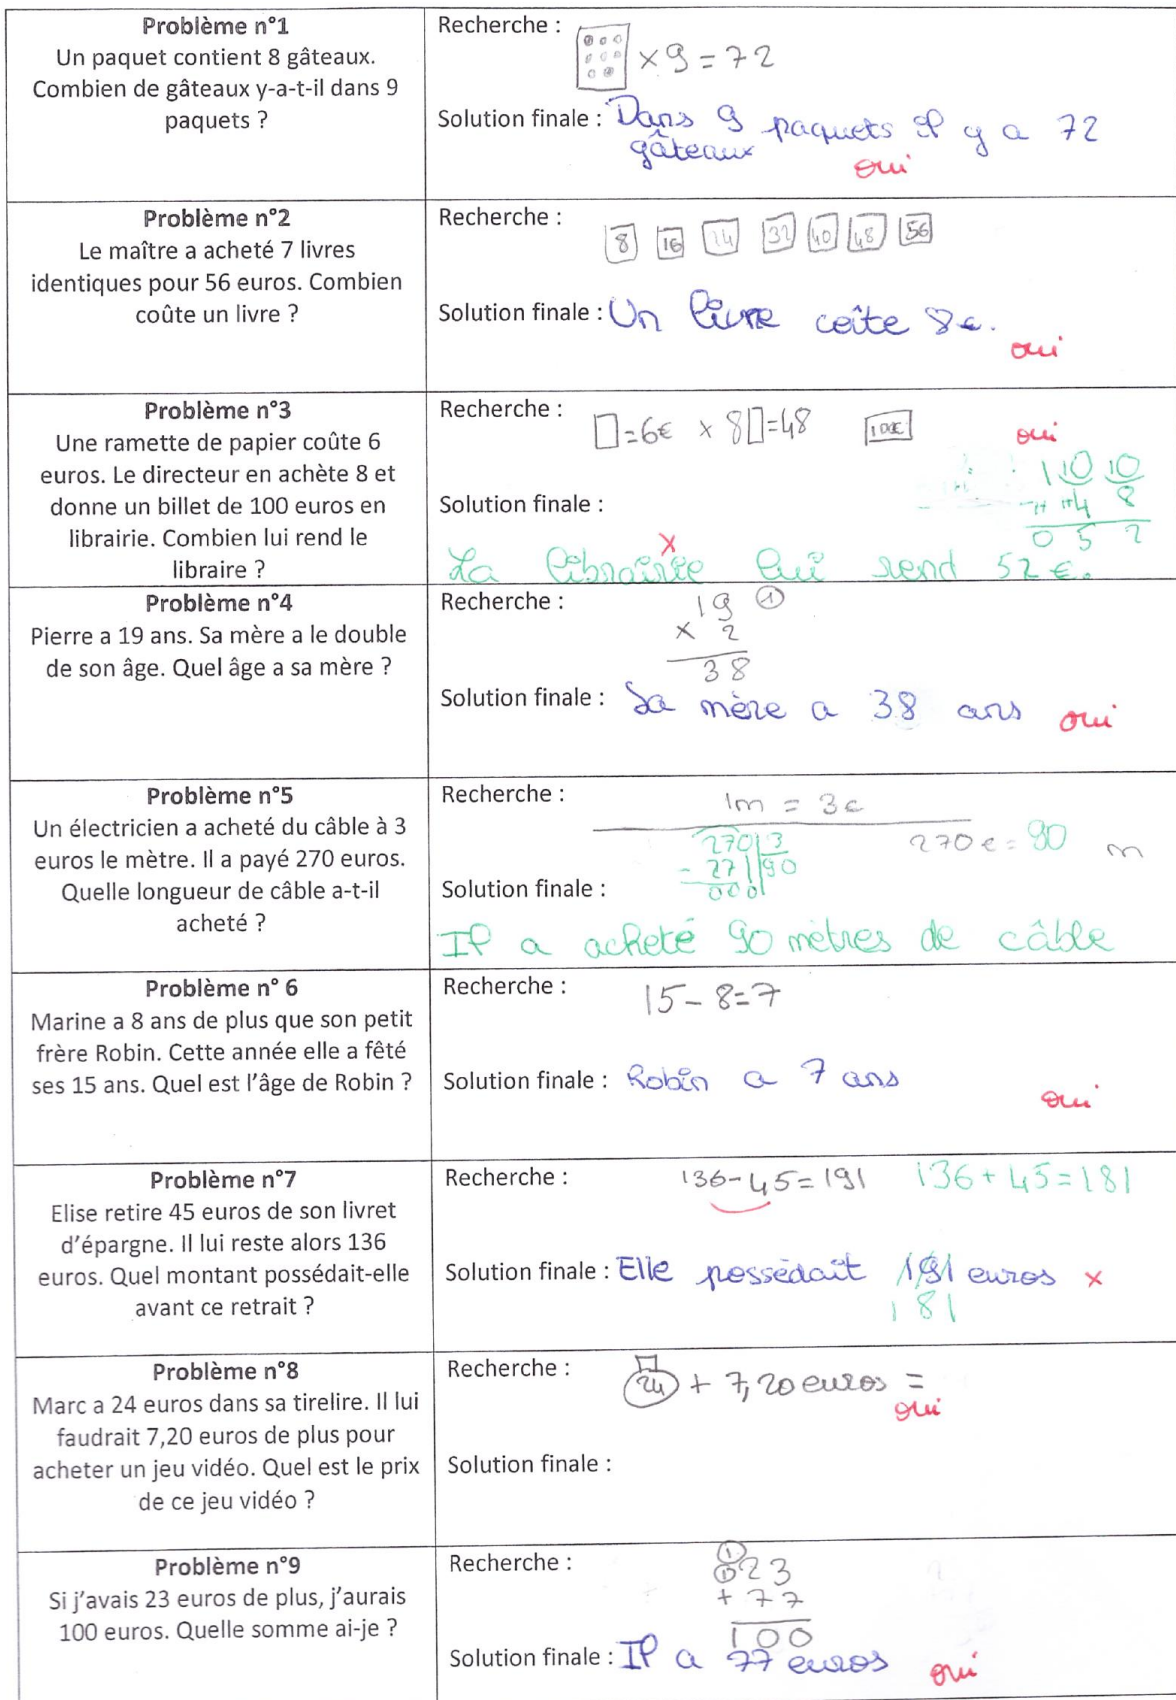 Problème n°1
Un paquet contient 8 gâteaux.
Combien de gâteaux y-a-t-il dans 9
paquets ?
Recherche :
x 9 = 72
Solution finale : Dans 9 paquets il y a 72
gâteaux
oui
Problème n°2
Le maître a acheté 7 livres
identiques pour 56 euros. Combien
coûte un livre ?
Recherche :
8 16 24 32 40 48 56
Solution finale : Un livre coîte 8€.
oui
Problème n°3
Une ramette de papier coûte 6
euros. Le directeur en achète 8 et
donne un billet de 100 euros en
librairie. Combien lui rend le
libraire ?
Recherche :
=6€ x 8 =48 100€
oui
1 10 10
- 1+ 1+4 8
0 5 2
Solution finale :
x
La librairie lui rend 52 €.
Problème n°4
Pierre a 19 ans. Sa mère a le double
de son âge. Quel âge a sa mère ?
Recherche :
19 1
x 2
38
Solution finale : Sa mère a 38 ans oui
Problème n°5
Un électricien a acheté du câble à 3
euros le mètre. Il a payé 270 euros.
Quelle longueur de câble a-t-il
acheté ?
Recherche :
1m = 3€
270€ = 90 m
270 3
- 27 90
000
Solution finale :
Il a acheté 90 mètres de câble
Problème n° 6
Marine a 8 ans de plus que son petit
frère Robin. Cette année elle a fêté
ses 15 ans. Quel est l'âge de Robin ?
Recherche :
15-8=7
Solution finale : Robin a 7 ans
oui
Problème n°7
Elise retire 45 euros de son livret
d'épargne. Il lui reste alors 136
euros. Quel montant possédait-elle
avant ce retrait ?
Recherche : 136-45=191 136+45=181
Solution finale : Elle possédait 191 euros x
181
Problème n°8
Marc a 24 euros dans sa tirelire. Il lui
faudrait 7,20 euros de plus pour
acheter un jeu vidéo. Quel est le prix
de ce jeu vidéo ?
Recherche :
24 + 7,20 euros =
oui
Solution finale :
Problème n°9
Si j'avais 23 euros de plus, j'aurais
100 euros. Quelle somme ai-je ?
Recherche :
1
23
+ 77
100
Solution finale : Il a 77 euros oui